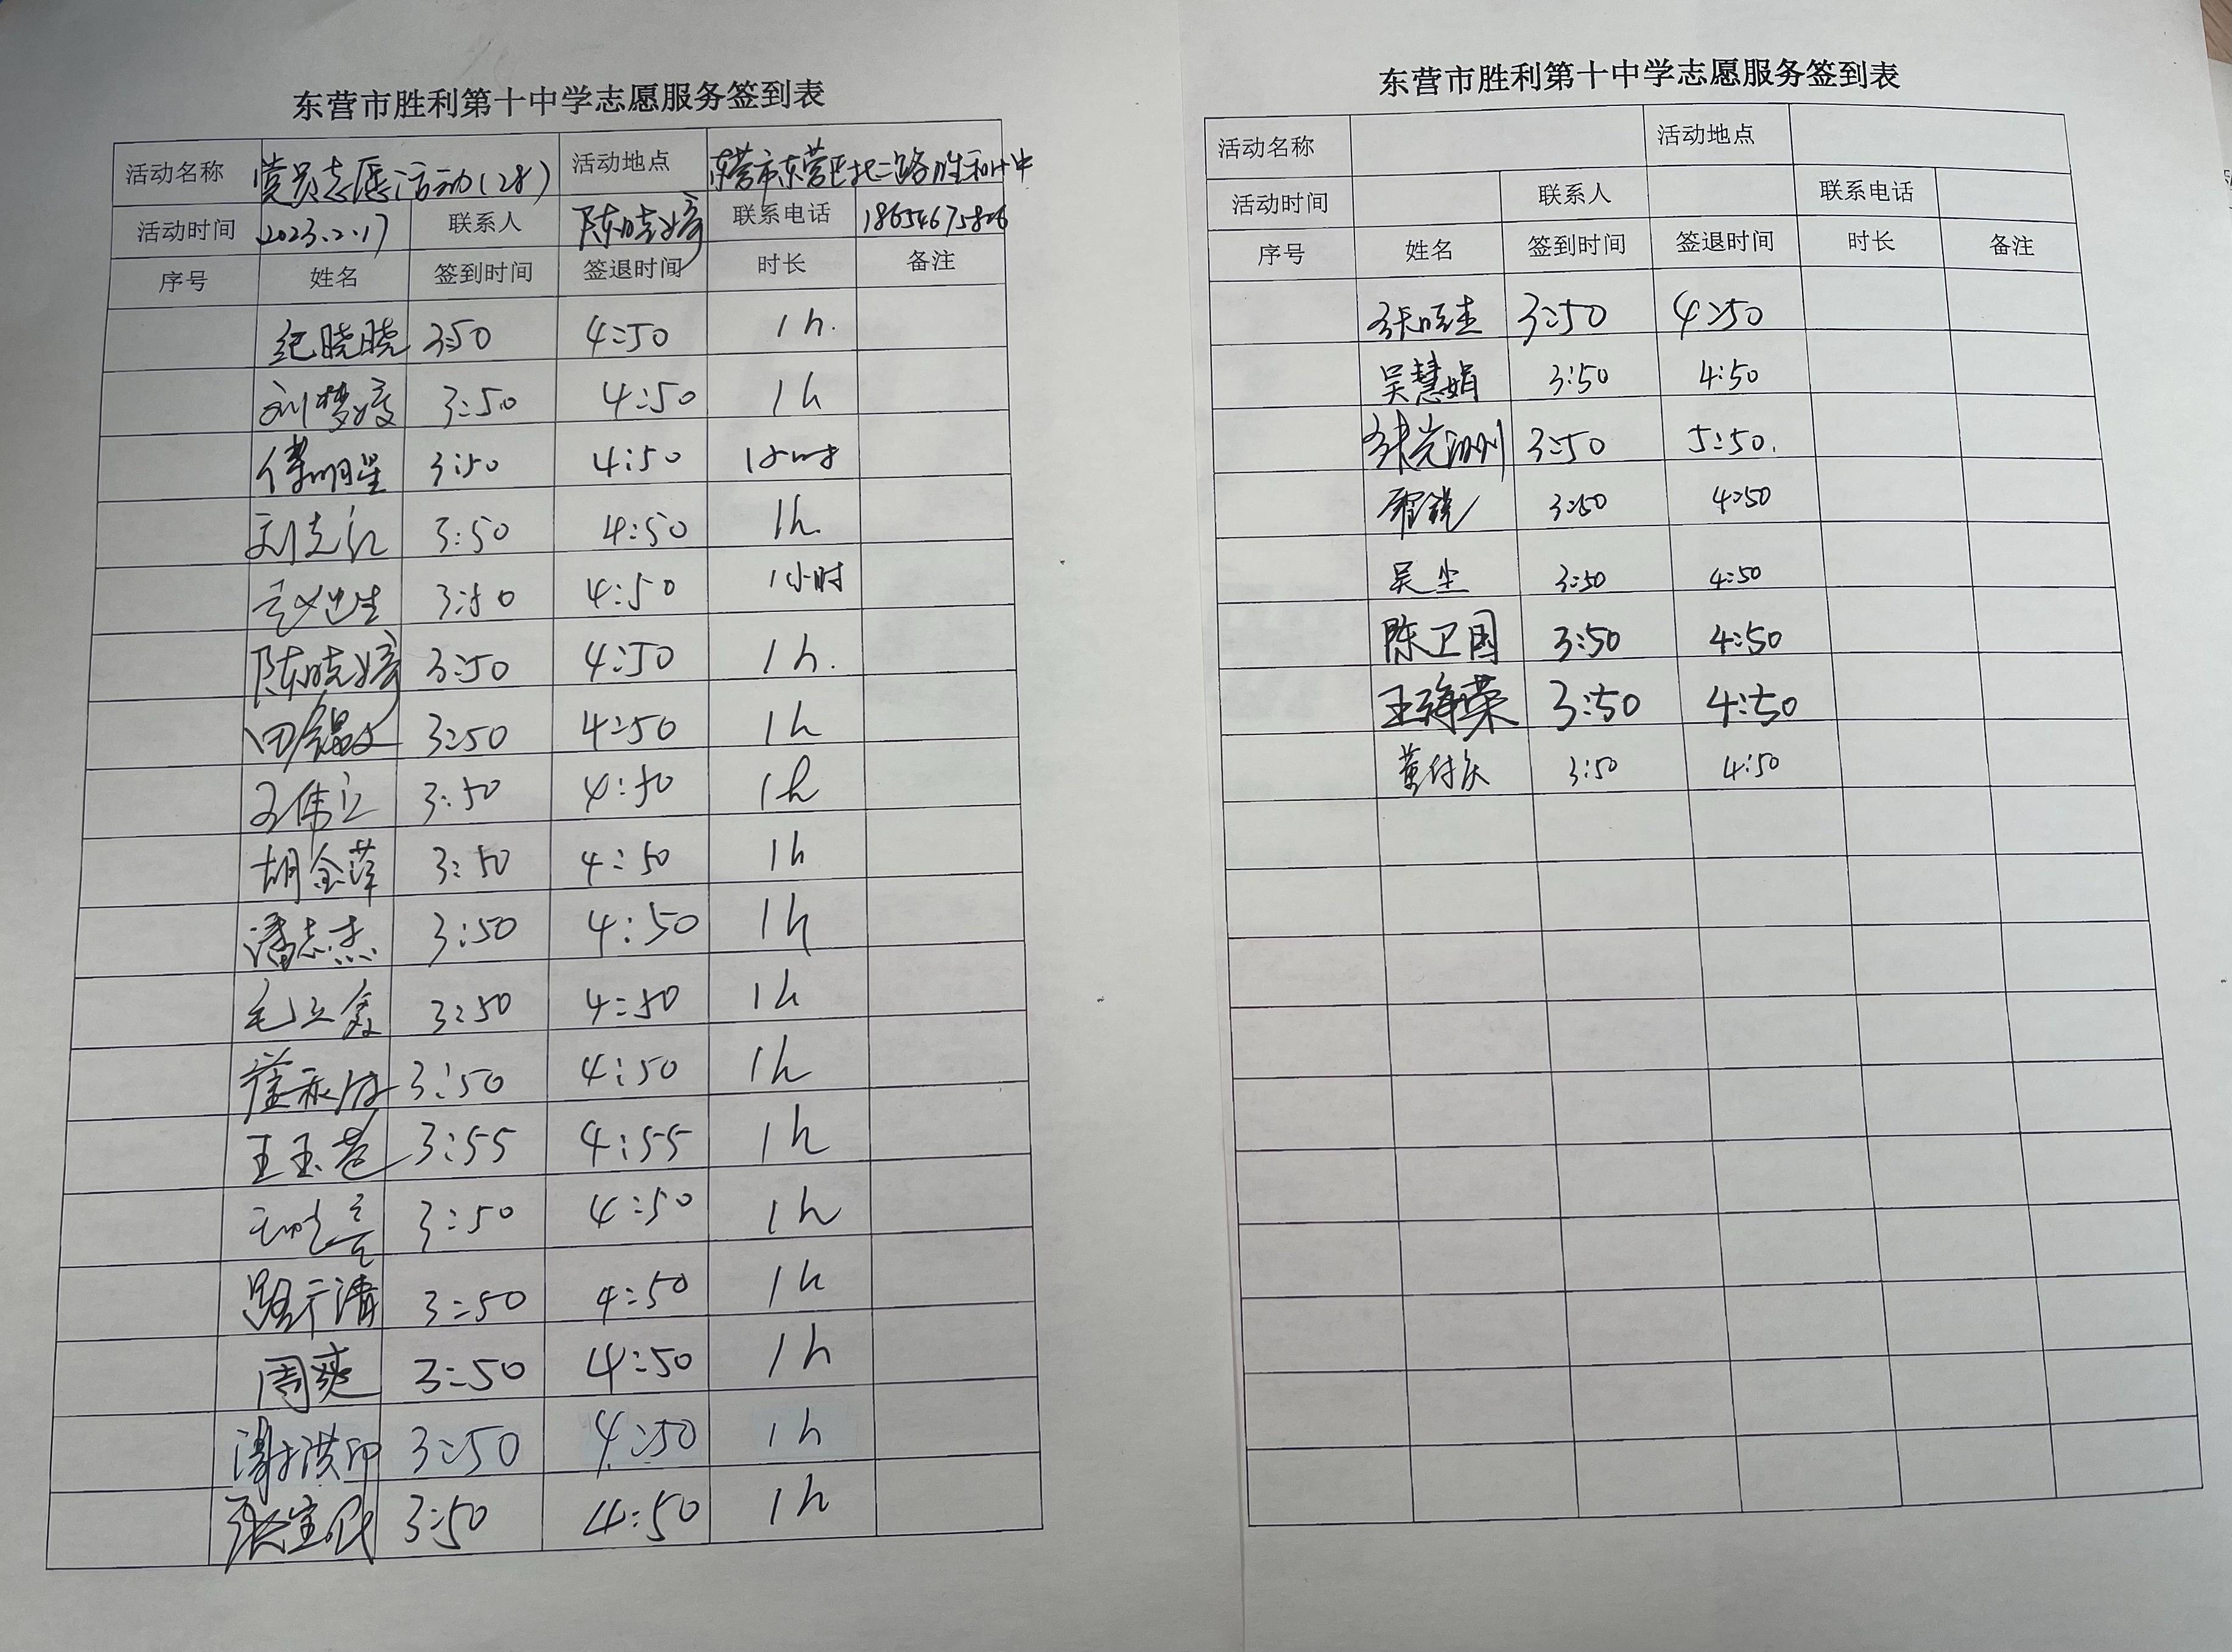 东营市胜利第十中学志愿服务签到表
活动名称 党员志愿活动(28) 活动地点 东营市东营区北二路胜利十中
活动时间 2023.2.17 联系人 陈晓婷 联系电话
序号 姓名 签到时间 签退时间 时长 备注
纪晓晓 3:50 4:50 1h.
刘梦婷 3:50 4:50 1h
傅明星 3:50 4:50 1小时
3:50 4:50 1h.
3:50 4:50 1小时
陈晓婷 3:50 4:50 1h.
3:50 4:50 1h
3:50 4:50 1h
胡金萍 3:50 4:50 1h
潘志杰 3:50 4:50 1h
毛立鑫 3:50 4:50 1h
3:50 4:50 1h
王玉苍 3:55 4:55 1h
3:50 4:50 1h
3:50 4:50 1h
周爽 3:50 4:50 1h
谢洪印 3:50 4:50 1h
张宝民 3:50 4:50 1h
东营市胜利第十中学志愿服务签到表
活动名称 活动地点
活动时间 联系人 联系电话
序号 姓名 签到时间 签退时间 时长 备注
3:50 4:50
吴慧娟 3:50 4:50
3:50 5:50.
3:50 4:50
吴尘 3:50 4:50
陈卫国 3:50 4:50
王海荣 3:50 4:50
董付庆 3:50 4:50